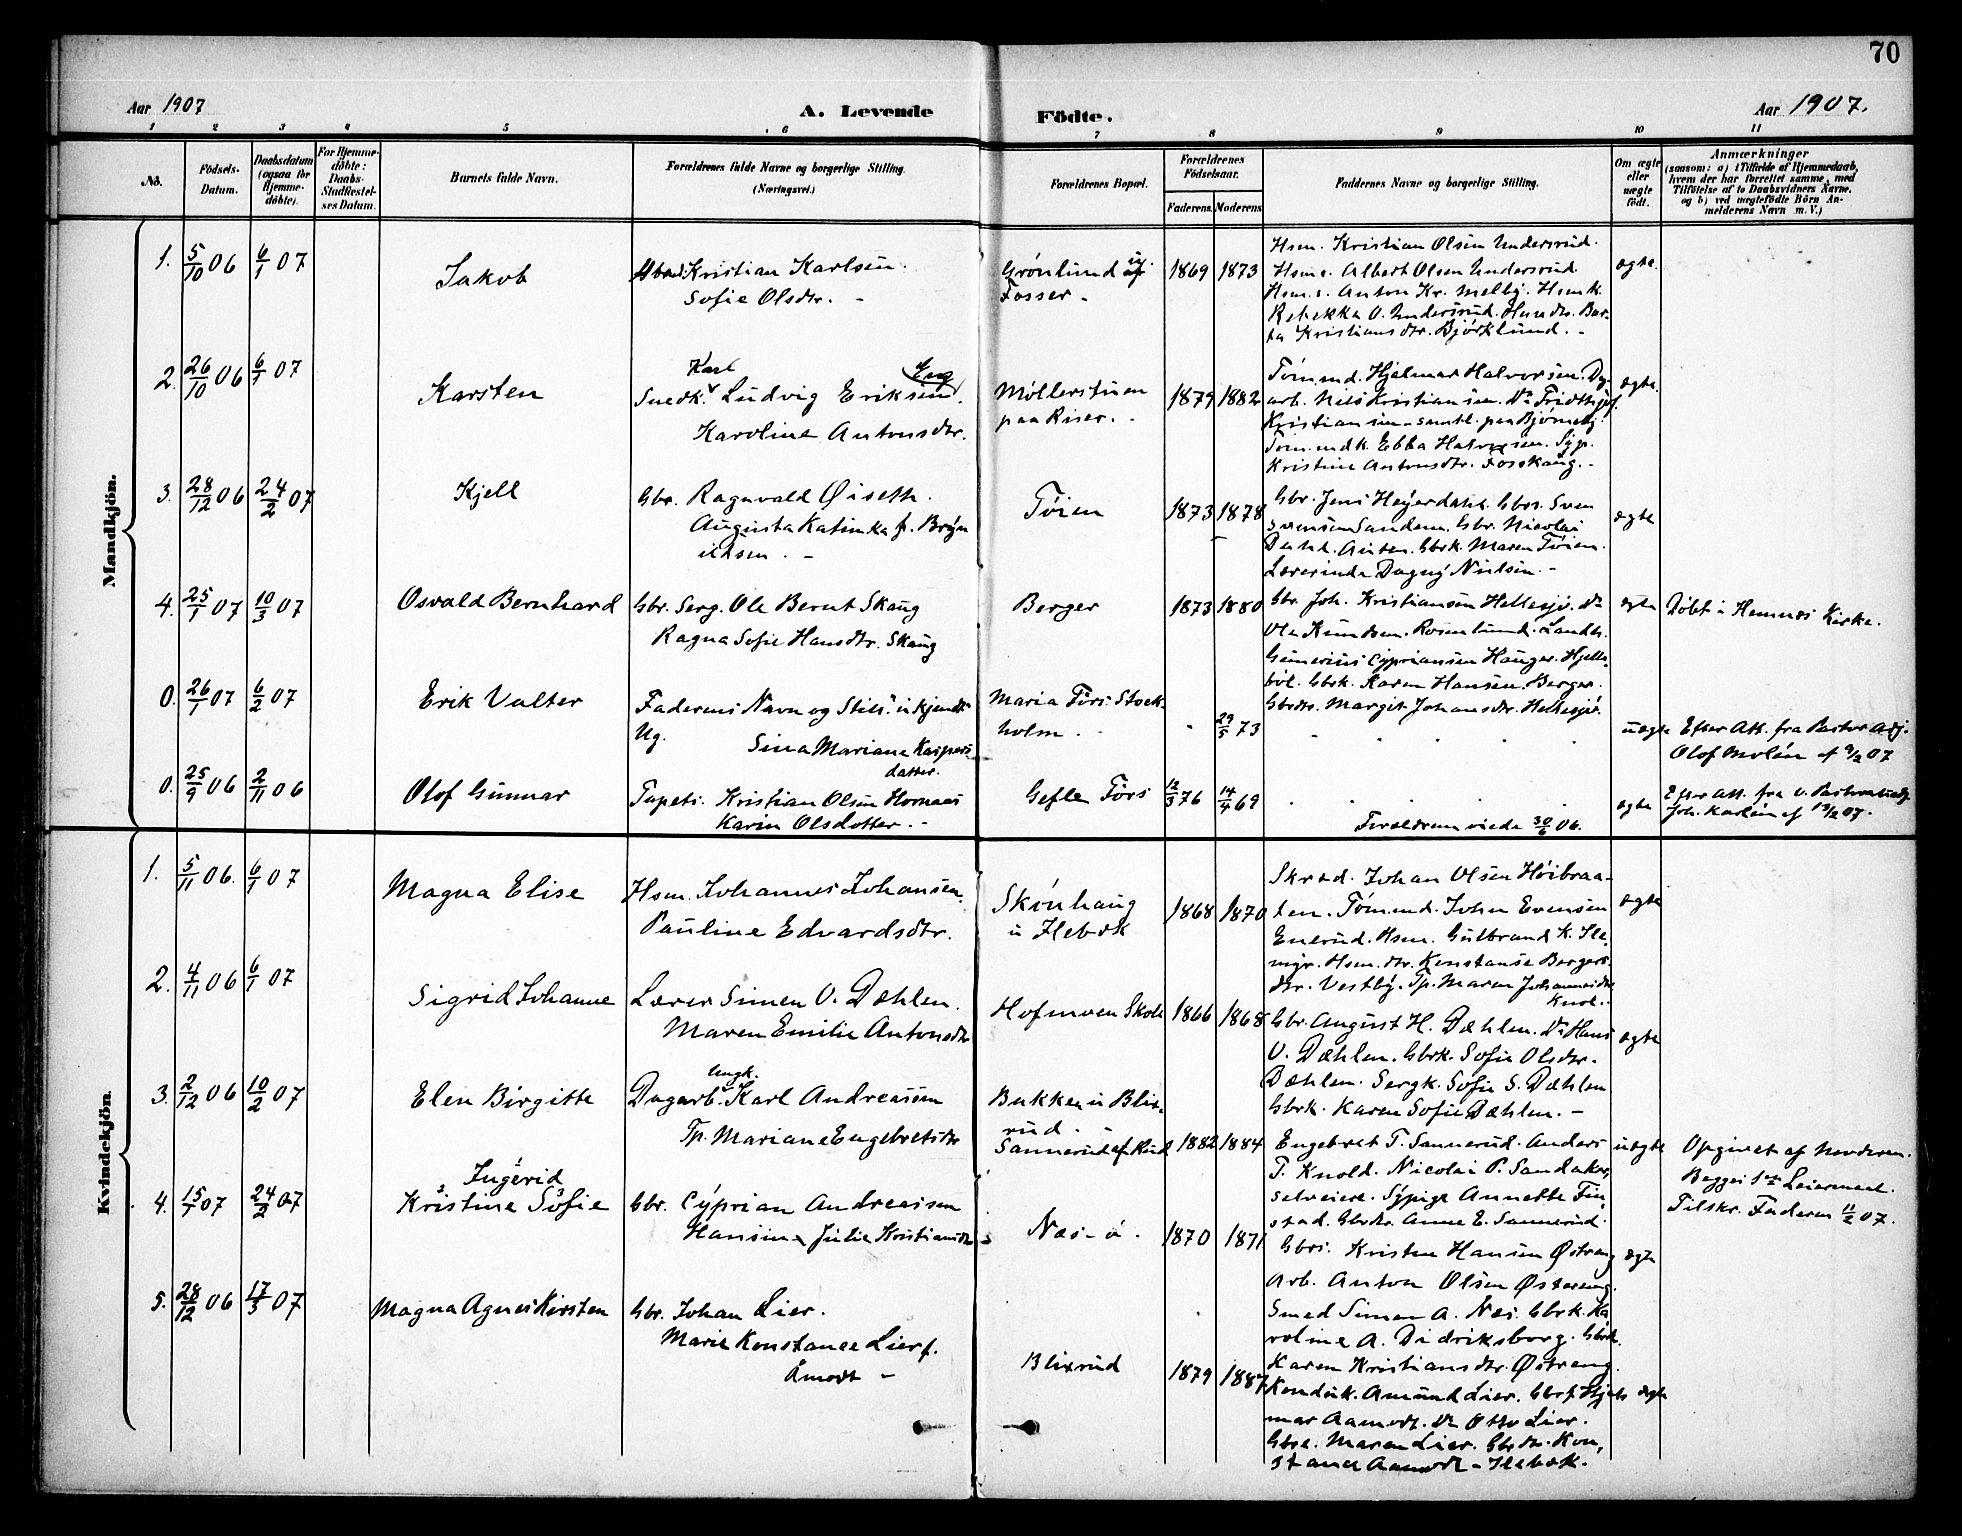 70
Aar 1907
A. Levende
Födte.
Aar 1907.
1 2 3 4 5 6 7 8 9 10 11
No.
Födsels-Datum.
Daabsdatum (ogsaa for Hjemme-döbte).
For Hjemme-döbte: Daabs-Stadfestel-ses Datum.
Barnets fulde Navn.
Forældrenes fulde Navne og borgerlige Stilling.
(Næringsvei.)
Forældrenes Bopæl.
Forældrenes Födselsaar.
Faderens. Moderens.
Faddernes Navne og borgerlige Stilling.
Om ægte eller uægte födt.
Anmærkninger
(saasom: a) i Tilfælde af Hjemmedaab, hvem der har forrettet samme, med Tilföielse af to Daabsvidners Navne, og b) ved uægtefödte Börn An-melderens Navn m. V.)
Mandkjön.
1. 5/10 06 6/1 07
Jakob
Kristian Karlsen.
Sofie Olsdtr. -
Grönlund
Fosser -
1869 1873
Hsm. Kristian Olsen Undersrud.
Hsm.s. Albert Olsen Undersrud.
Hsm.s. Anton Kr. Melby. Hsmk.
Rebekka O. Undersrud. Hsmdtr. Bar-
ta Kristiansdtr. Björklund. -
ægte.
2. 26/10 06 6/1 07
Karsten
Karl Eng
Snedk. Ludvig Eriksen.
Karoline Antonsdtr.
Möllerstuen
paa Riser. -
1879 1882
Töm.md. Hjelmar Halvorsen. Dag-
arb. Nils Kristiansen. Do Fridthjof
Kristiansen - samtl. paa Bjørneby.
Töm.mdk. Ebba Halvorsen. Syp.
Kristine Antonsdtr. Fosskaug. -
ægte.
3. 28/12 06 24/2 07
Kjell
Gbr. Ragnvald Øiseth.
Augusta Katinka f. Bryn
ildsen. -
Töien
1873 1878
Gbr. Jens Heyerdahl. Gbrs. Sven
Svensen Sandem. Gbr. Nicolai
Gbrk. Maren Töien.
Lærerinde Dagny Nielsen. -
ægte
4. 25/1 07 10/3 07
Osvald Bernhard
Gbr. Serg. Ole Bernt Skaug
Ragna Sofie Hansdtr. Skaug
Berger
1873 1880
Gbr. Joh. Kristiansen Hellesjö. Do
Ole Knudsen. Rosenlund. Landh.
Gunerius Cypriansen Hauger. Hjelle-
böl. Gbrk. Karen Hansen. Berger.
Gbrdtr. Margit Johansdtr. Hellesjö.
ægte
Döbt i Hemnes Kirke.
0. 26/1 07 6/2 07
Erik Valter
Faderens Navn og Still. ukjendt
Ug. Sina Mariane Kaspers-
datter.
Maria Förs. Stock-
holm.
29/5 73
uægte
Efter Att. fra Pastor Adj.
Olof Molén af 9/2 07
0. 25/9 06 2/11 06
Olof Gunnar
Tapets. Kristian Olsen Hornaas
Karin Olsdotter. -
Gefle Förs
12/3 76 14/4 69
Forældrene viede 30/6 06.
ægte
Efter Att. fra v. Pastor
Joh. Karlén af 13/2 07.
Kvindekjön.
1. 5/11 06. 6/1 07
Magna Elise
Hsm. Johannes Johansen.
Pauline Edvardsdtr.
Skönhaug
u Ilebæk
1868 1870
Skræd. Johan Olsen Höibraa-
ten. Töm.md. John Evensen
Enerud. Hsm. Gulbrand K. Ile-
myr. Hsm.dtr. Konstanse Bergers-
dtr. Vestby. Tp. Maren Johannesdtr
Knol.
ægte
2. 4/11 06 6/1 07
Sigrid Johanne
Lærer Simen O. Dæhlen.
Maren Emilie Antonsdtr
Hofmoen Skole
1866 1868
Gbr. August H. Dæhlen. Do Hans
O. Dæhlen. Gbrk. Sofie Olsdtr.
Dæhlen. Sergk. Sofie S. Dæhlen
Gbrk. Karen Sofie Dæhlen. -
ægte
3. 2/12 06 10/2 07
Elen Birgitte
Ungk.
Dagarb. Karl Andreasen
Tp. Mariane Engebretsdtr
Bukken u Blix-
rud.
Sannerud af Rud
1882 1884
Engebret T. Sannerud. Anders
T. Knold. Nicolai P. Sandaker,
selveiere. Sypige Annette Fin-
stad. Gbrdtr. Anne E. Sannerud.
uægte
Opgivet af Moderen.
Begges 1ste Leiermaal.
Tilskr. Faderen 11/2 07.
4. 15/1 07 24/2 07
Ingerid
Kristine Sofie
Gbr. Cyprian Andreasen
Hansine Julie Kristiansdtr
Næs - ö.
1870 1871
Gbrs. Kristen Hansen Østreng
Arb. Anton Olsen Östereng.
Smed Simen A. Næs. Gbrk. Ka-
roline A. Didriksborg. Gbrk.
Karen Kristiansdtr. Østreng.
ægte
5. 28/12 06 17/3 07
Magna Agnes Kirsten
Gbr. Johan Lier.
Marie Konstance Lier f.
Åmodt -
Blixrud
1879 1887
Konduk. Amund Lier. Gbrf. Hjal-
mar Aamodt. Do Otto Lier.
Gbre. Maren Lier. Gbrdtr. Kon-
stance Aamodt - Ilebæk.
ægte